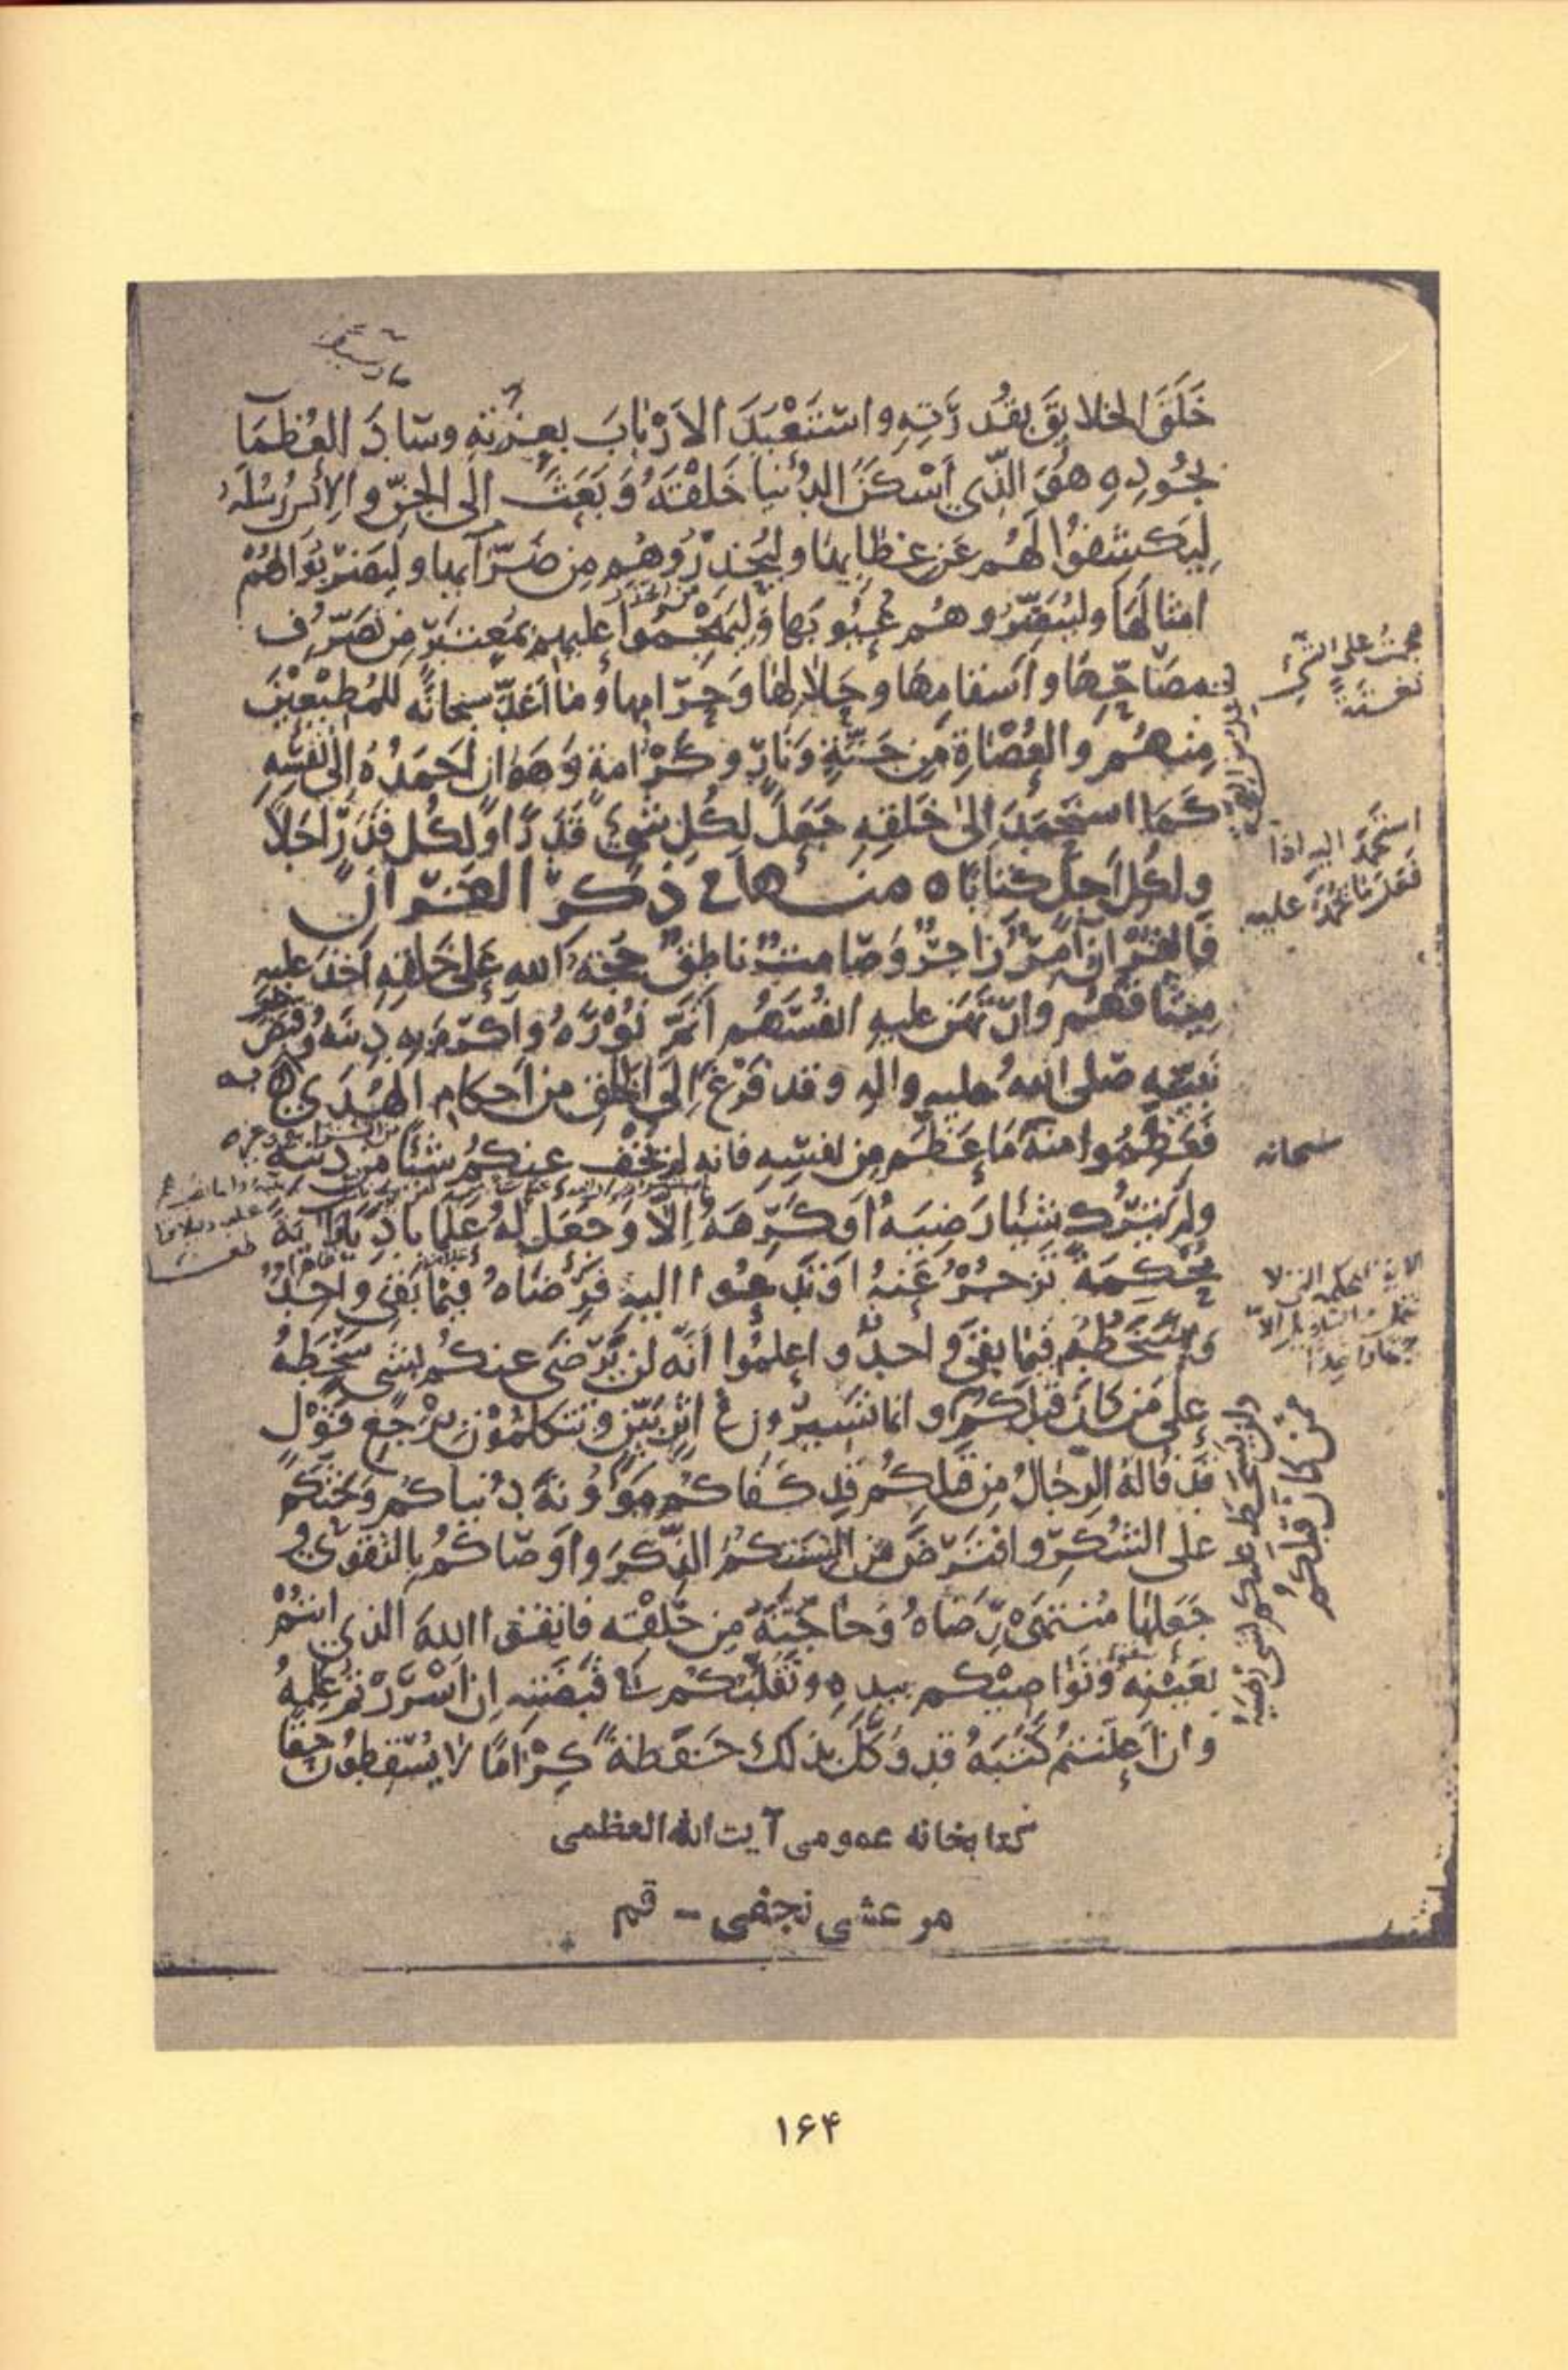 خَلَقَ الخلايِقَ بقُدرَتِهِ واسْتَعْبَدَ الاَرْبابَ بعِزّتِهِ وسَادَ العُظمَا
بجُودِهِ هُوَ الّذي اَسْكَنَ الدُّنيا خَلْقَهُ وَبَعَثَ اِلَى الجنّ والاِنسِ رُسُلَهُ
لِيَكشِفُوا لَهُم عَن غِطايِها وليُحَذِّرُوهُم مِن ضَرّايِها وليَضرِبُوا لَهُمْ
امثالَهَا وليُبَصِّرُوهُم عُيُوبَها وَليَهْجُمُوا عليهِم بمُعتبَرٍ مِن تَصَرُّفِ
مصَاحِّها واَسقامِها وحَلالِها وحَرامِها وما اَعَدّ سبحانَه للمُطِيْعِيْنَ
مِنهُم والعُصَاةِ مِن جَنّةٍ ونَارٍ وكَرامَةٍ وَهَوانٍ اَحمَدُهُ اِلى نَفسِهِ
كَمَا استَحمَدَ اِلى خَلقِهِ جَعَلَ لِكُلِ شَىْءٍ قَدرًا ولِكُلِ قَدرٍ اَجَلاً
ولِكُلِ اَجَلٍ كتابًا ه منـها في ذكر القرآن
فَالقُرْانُ اٰمِرٌ زاجِرٌ وَصَامِتٌ ناطِقٌ حُجّةُ اللهِ عَلى خَلقِهِ اَخَذَ عليهِ
مِيثَاقَهُم وارتَهَنَ عليهِ اَنفُسَهُم اَتَمَّ نُوْرَهُ واَكرَمَ بِهِ دِينَهُ وقَبَضَ
نَبيّهِ صَلى اللهُ عليهِ والهِ وقد فَرَغَ اِلَى الخَلقِ مِن اَحكامِ الهُدَى به
فَعَظِّمُوا مِنهُ مَا عَظّمَ مِن نَفسِهِ فانه لم يُخْفِ عنكُم شَيئًا مِن دينِهِ
ولم يَترُك شَيئًا رَضِيَهُ اَو كَرِهَهُ اِلّا وجَعَلَ لهُ عَلَمًا بادِيًا وايَةً
مُحكَمَةً تَزجُرُ عَنهُ اَو تَدعُوا اليهِ فرِضَاهُ فيمَا بَقِيَ واحِدٌ
وسَخَطُهُ فيمَا بقيَ واحدٌ واعلَمُوا اَنّه لن يَرضَى عنكُم بشَىْءٍ سَخِطَهُ
على مَن كانَ قبلَكُم وانما تَسِيرُونَ في اَثَرٍ بَيِّنٍ وتَتكلّمُوْنَ برَجْعِ قَوْلٍ
قد قالَهُ الرّجالُ مِن قبلِكُم قد كَفاكُم مَؤُونَةَ دُنياكُم وحَثّكُم
على الشُكرِ وافتَرَضَ مِن السِنتكُمُ الذِّكرَ واَوصَاكُم بِالتقوَى و
جَعَلَها مُنتَهَى رِضَاهُ وَحَاجَتَهُ مِن خَلْقِه فاتقوا اللهَ الذي انتُمْ
بعَيْنِهِ ونَوَاصِيْكم بيدِهِ وتَقَلُّبُكُم في قَبضَتِهِ اِن اَسْرَرْتُم عَلِمَهُ
وان اَعلَنتُم كَتَبَهُ قد وَكّلَ بذلكَ حَفَظَةً كِرامًا لا يُسْقِطُونَ حَقًّا
هجمتُ على الشّىءِ
بَغتَةً
استَحمَدَ اليه اذا
عليه
سبحانه
ولن يَسخَطَ عليكم بشىءٍ رَضِيَهُ
مَن كانَ قبلَكُم
كتابخانه عمومى آيت الله العظمى
مرعشى نجفى - قم
۱۶۴